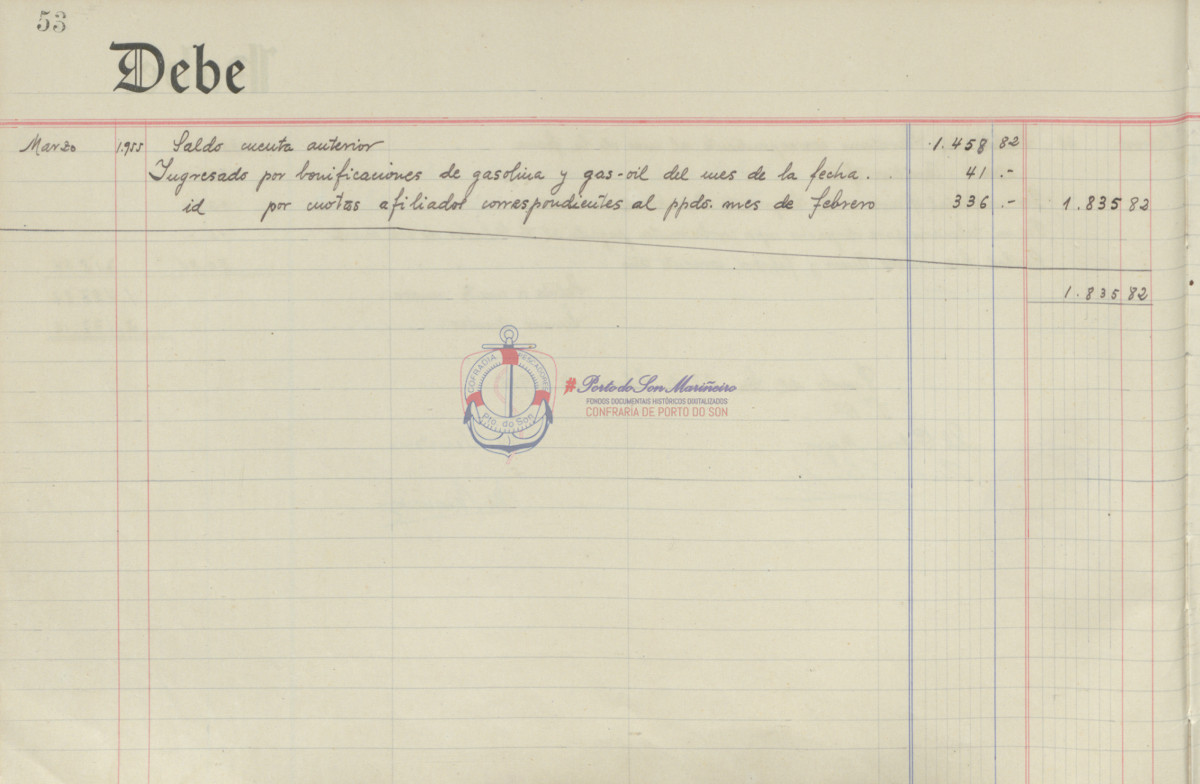 53
Debe
Marzo 1.955 Saldo cuenta anterior 1.458 82
Ingresado por bonificaciones de gasolina y gas-oil del mes de la fecha . . 41 .-
id por cuotas afiliados correspondientes al ppdo. mes de febrero 336 .- 1.835 82
1.835 82
COFRADIA PESCADORES
Pto. do Son
#Porto do Son Mariñeiro
FONDOS DOCUMENTAIS HISTÓRICOS DIXITALIZADOS
CONFRARÍA DE PORTO DO SON